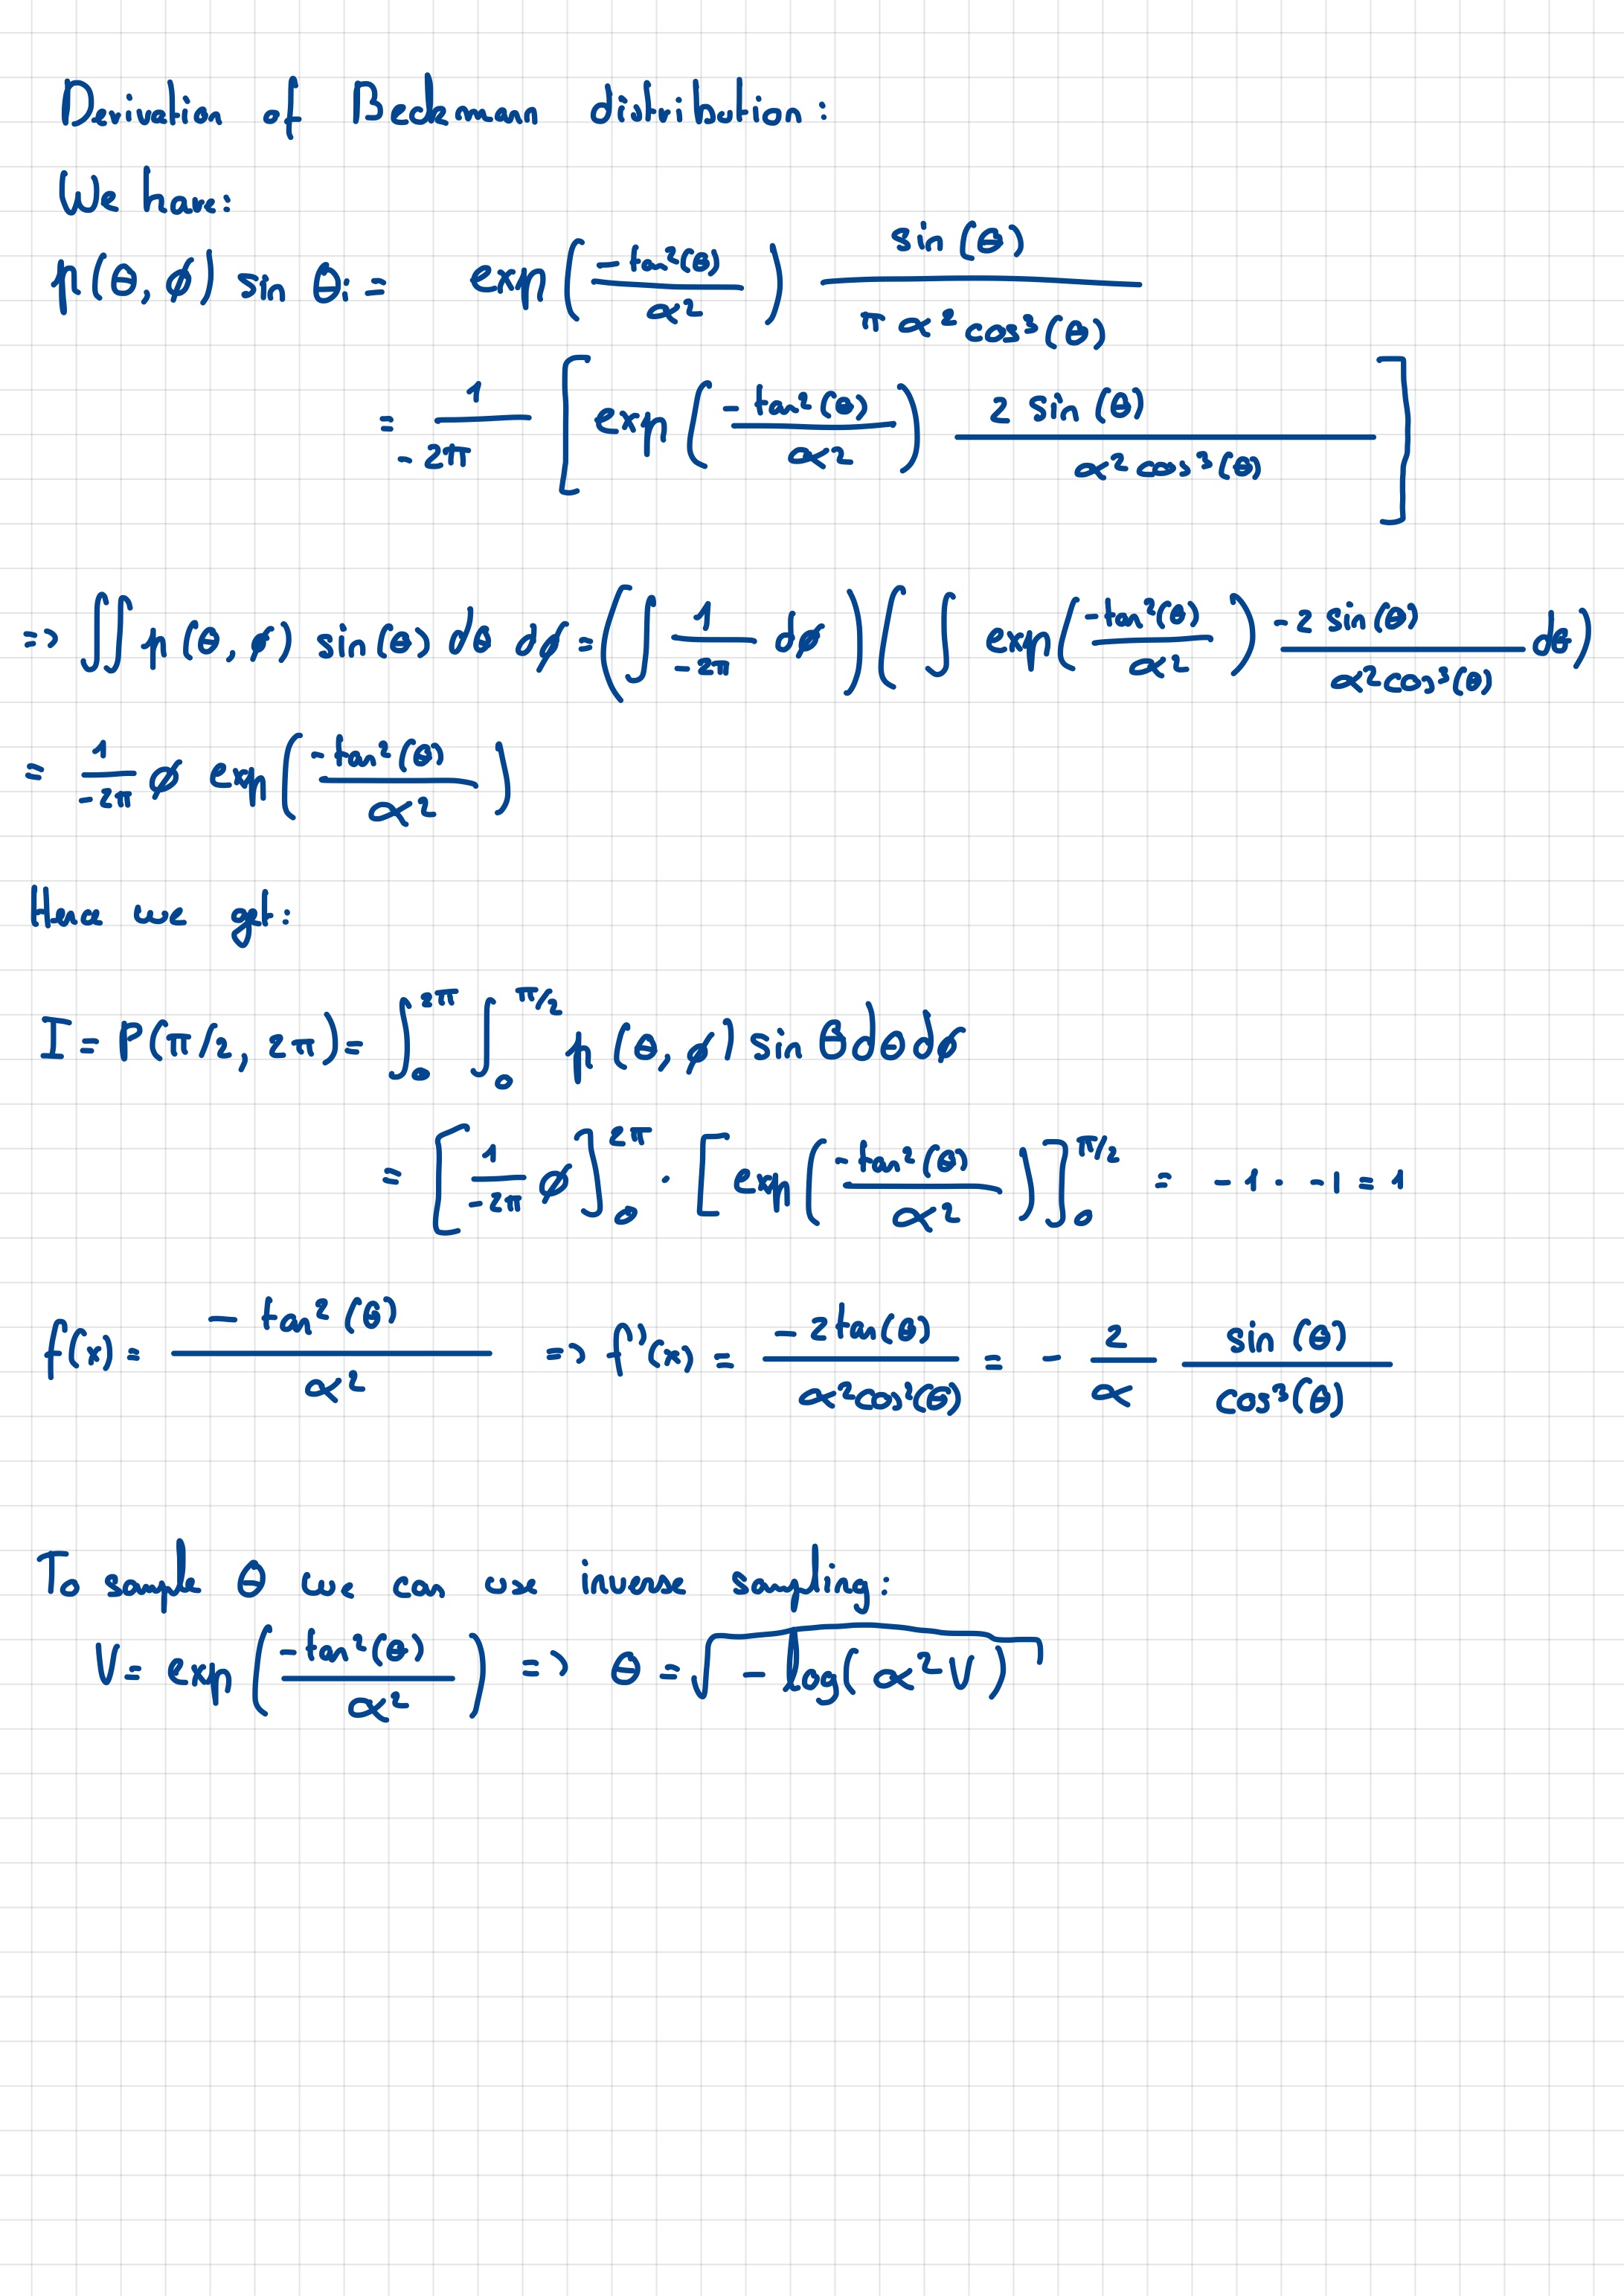 Derivation of Beckmann distribution:
We have:
p(θ, ϕ) sin θ := exp(-tan²(θ)/α²) sin(θ)/(π α² cos³(θ))
= 1/(-2π) [exp(-tan²(θ)/α²) 2 sin(θ)/(α² cos³(θ))]
=> ∫∫ p(θ, ϕ) sin(θ) dθ dϕ = (∫ 1/(-2π) dϕ)(∫ exp(-tan²(θ)/α²) -2 sin(θ)/(α² cos³(θ)) dθ)
= 1/(-2π) ϕ exp(-tan²(θ)/α²)
Hence we get:
I = P(π/2, 2π) = ∫₀^{2π} ∫₀^{π/2} p(θ, ϕ) sin θ dθ dϕ
= [1/(-2π) ϕ]₀^{2π} · [exp(-tan²(θ)/α²)]₀^{π/2} = -1 · -1 = 1
f(x) = -tan²(θ)/α² => f'(x) = -2tan(θ)/(α²cos²(θ)) = - 2/α sin(θ)/cos³(θ)
To sample θ we can use inverse sampling:
V = exp(-tan²(θ)/α²) => θ = √(-log(α²V))